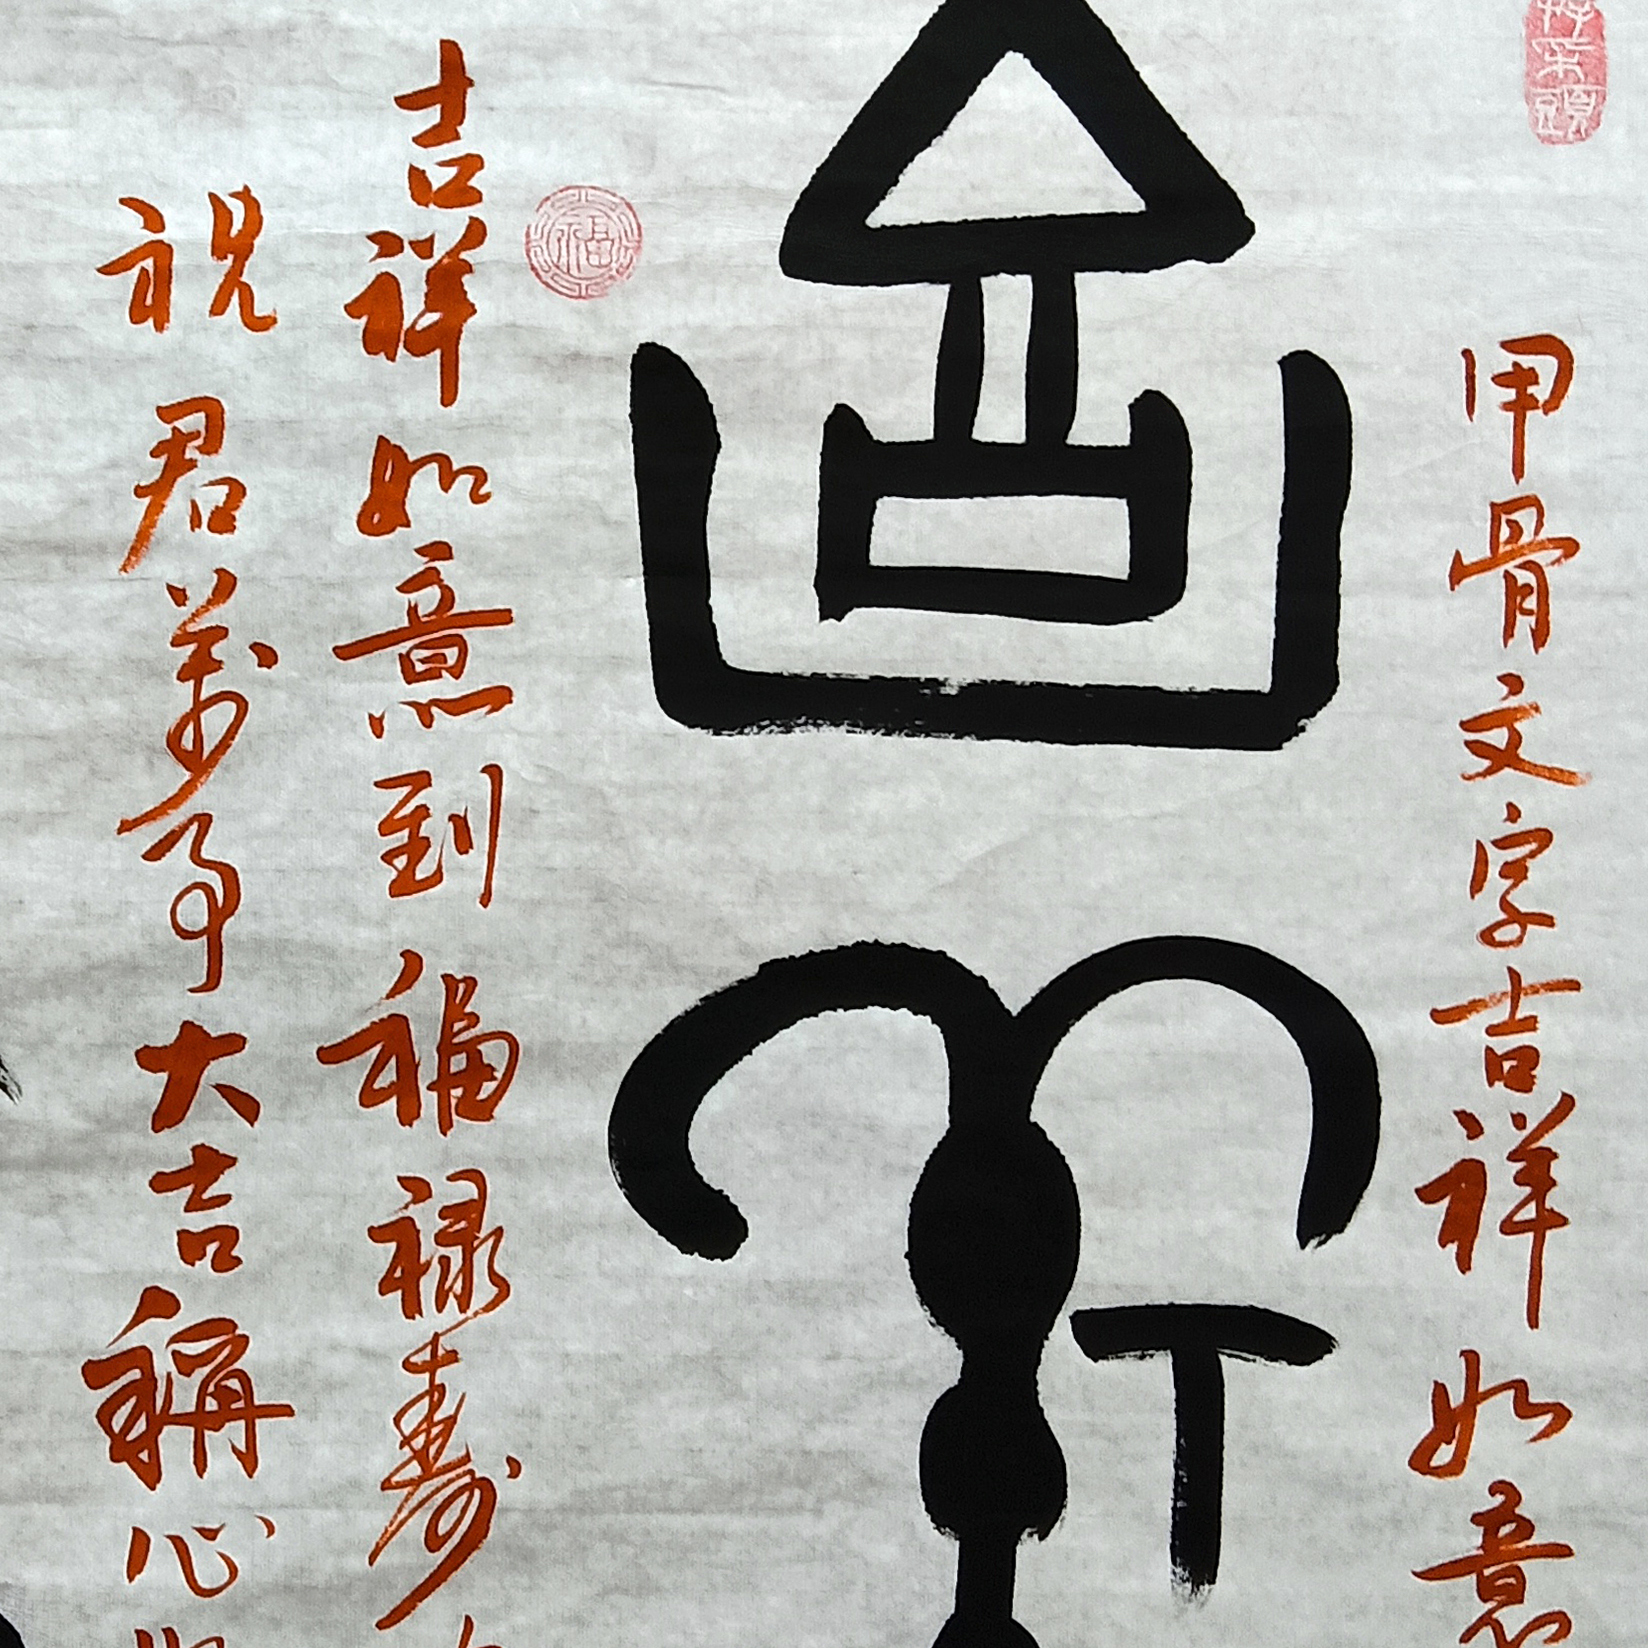 甲骨文字吉祥如意
吉祥
吉祥如意到福禄寿
祝君萬事大吉稱心
福